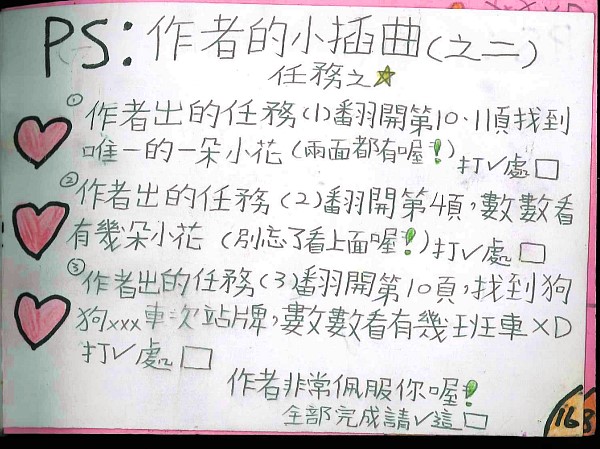 PS:作者的小插曲(之二)
任務之☆
①作者出的任務(1)翻開第10、11頁找到
唯一的一朵小花(兩面都有喔!)打✓處□
②作者出的任務(2)翻開第4頁,數數看
有幾朵小花(別忘了看上面喔!)打✓處□
③作者出的任務(3)翻開第10頁,找到狗
狗xxx車次站牌,數數看有幾班車XD
打✓處□
作者非常佩服你喔!
全部完成請✓這□
16